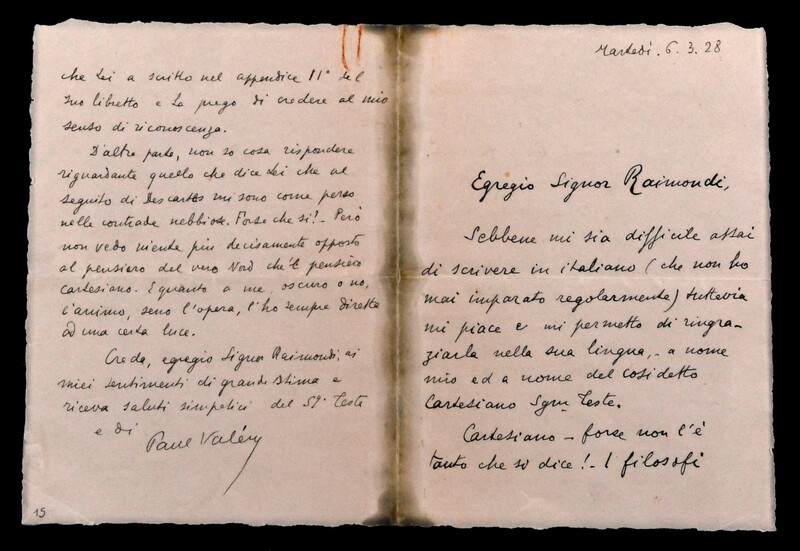 Martedì. 6. 3. 28
Egregio Signor Raimondi,
Sebbene mi sia difficile assai
di scrivere in italiano (che non ho
mai imparato regolarmente) tuttavia
mi piace e mi permetto di ringra-
ziarla nella sua lingua, - a nome
mio ed a nome del cosidetto
Cartesiano Sgm Teste.
Cartesiano - forse non l'è
tanto che si dice! - I filosofi
che Lei a scritto nel appendice IIª del
suo libretto e La prego di credere al mio
senso di riconoscenza.
D'altre parte, non so cosa rispondere
riguardante quello che dice Lei che al
seguito di Descartes mi sono come perso
nelle contrade nebbiose. Forse che si! - Però
non vedo niente più decisamente opposto
al pensiero del vero Nord ch'il pensiero
cartesiano. E quanto a me, oscuro o no,
l'animo, seno l'opera, l'ho sempre diretta
ad una certa luce.
Creda, egregio Signor Raimondi, ai
miei sentimenti di grande stima e
riceva saluti simpatici del Sgr Teste
e di
Paul Valéry
15